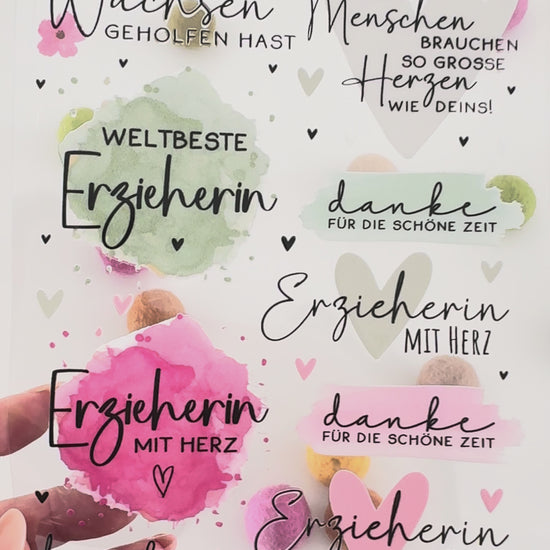 Wachsen
GEHOLFEN HAST
Menschen
BRAUCHEN
SO GROSSE
Herzen
WIE DEINS!
WELTBESTE
Erzieherin
danke
FÜR DIE SCHÖNE ZEIT
Erzieherin
MIT HERZ
Erzieherin
MIT HERZ
danke
FÜR DIE SCHÖNE ZEIT
Erzieherin